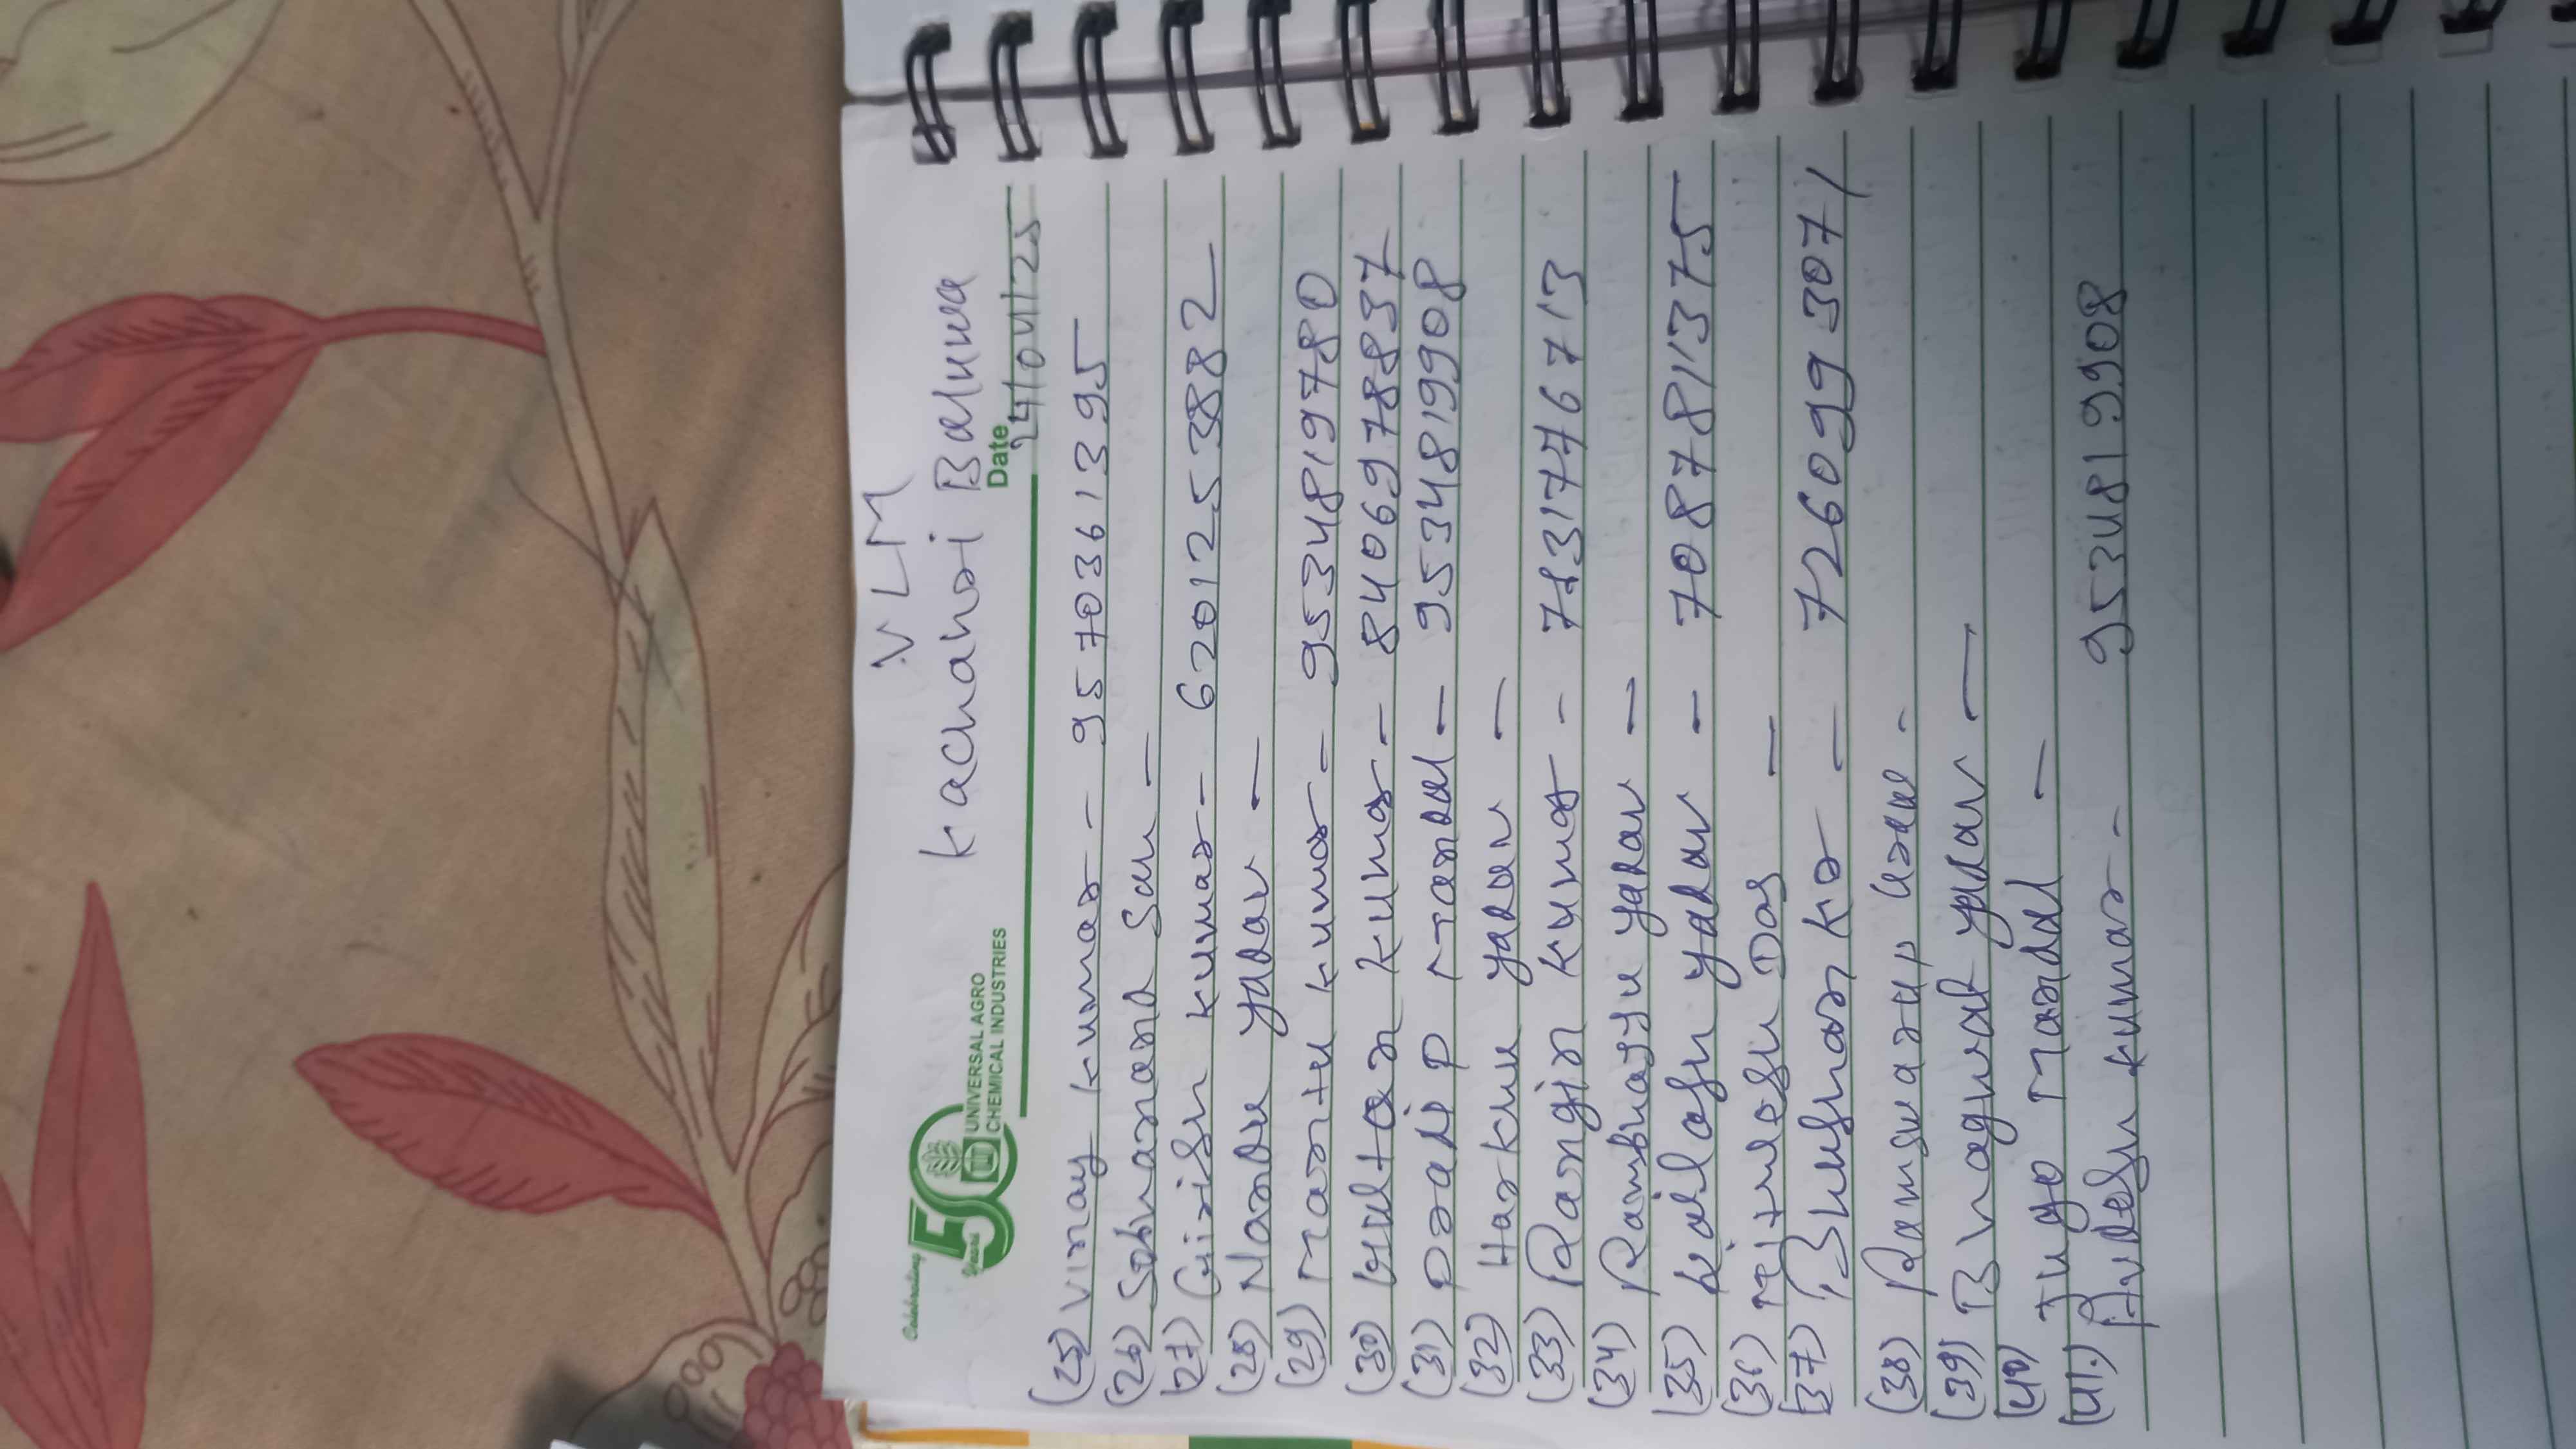 VLM
Kachahari Baluwa
Celebrating
50
Years
UNIVERSAL AGRO
CHEMICAL INDUSTRIES
Date
24/04/25
(25) Vinay Kumar - 9570361395
(26) Sobhanand Sah -
(27) Girish Kumar - 6201253882
(28) Nandu yadav -
(29) Mantu kumar - 9534819780
(30) Kumar - 8406978837
(31) Pradip Mandal - 9534819908
(32) Harkhu yadav -
(33) Rangin Kumar - 7317767 13
(34) yadav -
(35) Kailash yadav - 7087811375
(36) Mithlesh Das -
(37) Bhushan Kr - 7260993071
(38)
(39) Bhagwat yadav -
(40) Jugo Mandal -
(41.) Avdesh Kumar - 9534819908